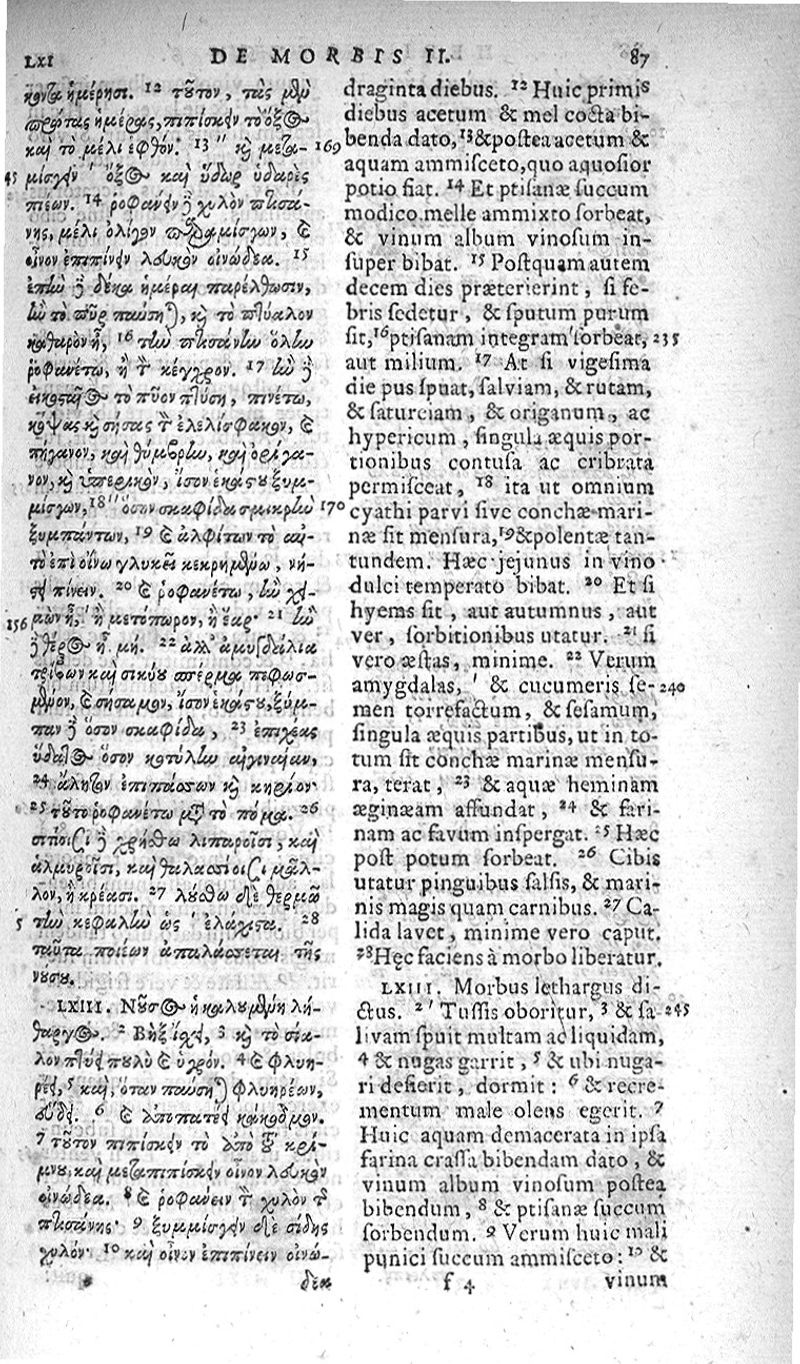 LXI DE MORBIS II. 87
κοντα ἡμέρησι. 12 τοῦτον, τὰς μὲν
πρώτας ἡμέρας, πιπίσκειν τὸ ὄξος
καὶ τὸ μέλι ἑφθόν. 13 " καὶ μετα- 169
45 μίσγειν ' ὄξος καὶ ὕδωρ ὑδαρὲς
πιέων. 14 ῥοφάνειν δὲ χυλὸν πτισά-
νης, μέλι ὀλίγον παραμίσγων, καὶ
οἶνον ἐπιπίνειν λευκὸν οἰνώδεα. 15
ἐπὴν δὲ δέκα ἡμέραι παρέλθωσιν,
ἢν τὸ πῦρ παύσηται, καὶ τὸ πτύαλον
καθαρὸν ᾖ, 16 τὴν πτισάνην ὅλην
ῥοφανέτω, ἢ τὸν κέγχρον. 17 ἢν δὲ
εἰκοσταῖος τὸ πῦον πτύσῃ, πινέτω,
κόψας καὶ σήσας τὸν ἐλελίσφακον, καὶ
πήγανον, καὶ θύμβρην, καὶ ὀρίγα-
νον, καὶ ὑπερικὸν, ἴσον ἑκάστου ξυμ-
μίσγων, 18 " ὅσον σκαφίδα σμικρὴν 170
ξυμπάντων, 19 καὶ ἀλφίτου τὸ αὐ-
τὸ ἐπὶ οἴνῳ γλυκεῖ κεκρημένῳ, νή-
στει πίνειν. 20 καὶ ῥοφανέτω, ἢν χει-
156 μὼν ᾖ, ' ἢ μετόπωρον, ἢ ἔαρ· 21 ἢν
δὲ θέρος ᾖ μή. 22 ἀλλ' ἀμυγδάλια
τρίβων καὶ σικύου σπέρμα πεφωσ-
μένον, καὶ σήσαμον, ἴσον ἑκάστου, ξύμ-
παν δὲ ὅσον σκαφίδα, 23 ἐπιχέας
ὕδατος ὅσον κοτύλην αἰγιναίην,
24 ἄλητον ἐπιπάσσων καὶ κηρίον·
25 τοῦτο ῥοφανέτω μετὰ τὸ πόμα. 26
σιτίοισι δὲ χρήσθω λιπαροῖσι, καὶ
ἁλμυροῖσι, καὶ θαλασσίοισι μᾶλ-
λον, ἢ κρέασι. 27 λούσθω δὲ θερμῷ
5 τὴν κεφαλὴν ὡς ' ἐλάχιστα. 28
ταῦτα ποιέων ἀπαλάσσεται τῆς
νούσου.
LXIII. Νοῦσος ἡ καλουμένη λή-
θαργος. 2 Βὴξ ἴσχει, 3 καὶ τὸ σία-
λον πτύει πουλὺ καὶ ὑγρόν. 4 καὶ φλυη-
ρεῖ, 5 καὶ, ὅταν παύσηται φλυηρέων,
εὕδει. 6 καὶ ἀποπατεῖ κάκοδμον.
7 τοῦτον πιπίσκειν τὸ ἀπὸ τοῦ κρί-
μνου, καὶ μεταπιπίσκειν οἶνον λευκὸν
οἰνώδεα. 8 καὶ ῥοφάνειν τὸν χυλὸν τῆς
πτισάνης· 9 ξυμμίσγειν δὲ σίδης
χυλόν· 10 καὶ οἶνον ἐπιπίνειν οἰνώ-
δεα
draginta diebus. 12 Huic primis
diebus acetum & mel cocta bi-
benda dato, 13 & postea acetum &
aquam ammisceto, quo aquosior
potio fiat. 14 Et ptisanæ succum
modico melle ammixto sorbeat,
& vinum album vinosum in-
super bibat. 15 Postquam autem
decem dies præterierint, si fe-
bris sedetur, & sputum purum
sit, 16 ptisanam integram ' sorbeat, 235
aut milium. 17 At si vigesima
die pus spuat, salviam, & rutam,
& satureiam, & origanum, ac
hypericum, singula æquis por-
tionibus contusa ac cribrata
permisceat, 18 ita ut omnium
cyathi parvi sive conchæ mari-
næ sit mensura, 19 & polentæ tan-
tundem. Hæc jejunus in vino
dulci temperato bibat. 20 Et si
hyems sit, aut autumnus, aut
ver, sorbitionibus utatur. 21 si
vero æstas, minime. 22 Verum
amygdalas, ' & cucumeris se- 240
men torrefactum, & sesamum,
singula æquis partibus, ut in to-
tum sit conchæ marinæ mensu-
ra, terat, 23 & aquæ heminam
æginæam affundat, 24 & fari-
nam ac favum inspergat. 25 Hæc
post potum sorbeat. 26 Cibis
utatur pinguibus salsis, & mari-
nis magis quam carnibus. 27 Ca-
lida lavet, minime vero caput.
28 Hęc faciens à morbo liberatur.
LXIII. Morbus lethargus di-
ctus. 2 ' Tussis oboritur, 3 & sa- 245
livam spuit multam ac liquidam,
4 & nugas garrit, 5 & ubi nuga-
ri desierit, dormit: 6 & recre-
mentum male olens egerit. 7
Huic aquam demacerata in ipsa
farina crassa bibendam dato, &
vinum album vinosum postea
bibendum, 8 & ptisanæ succum
sorbendum. 9 Verum huic mali
punici succum ammisceto: 10 &
f 4 vinum